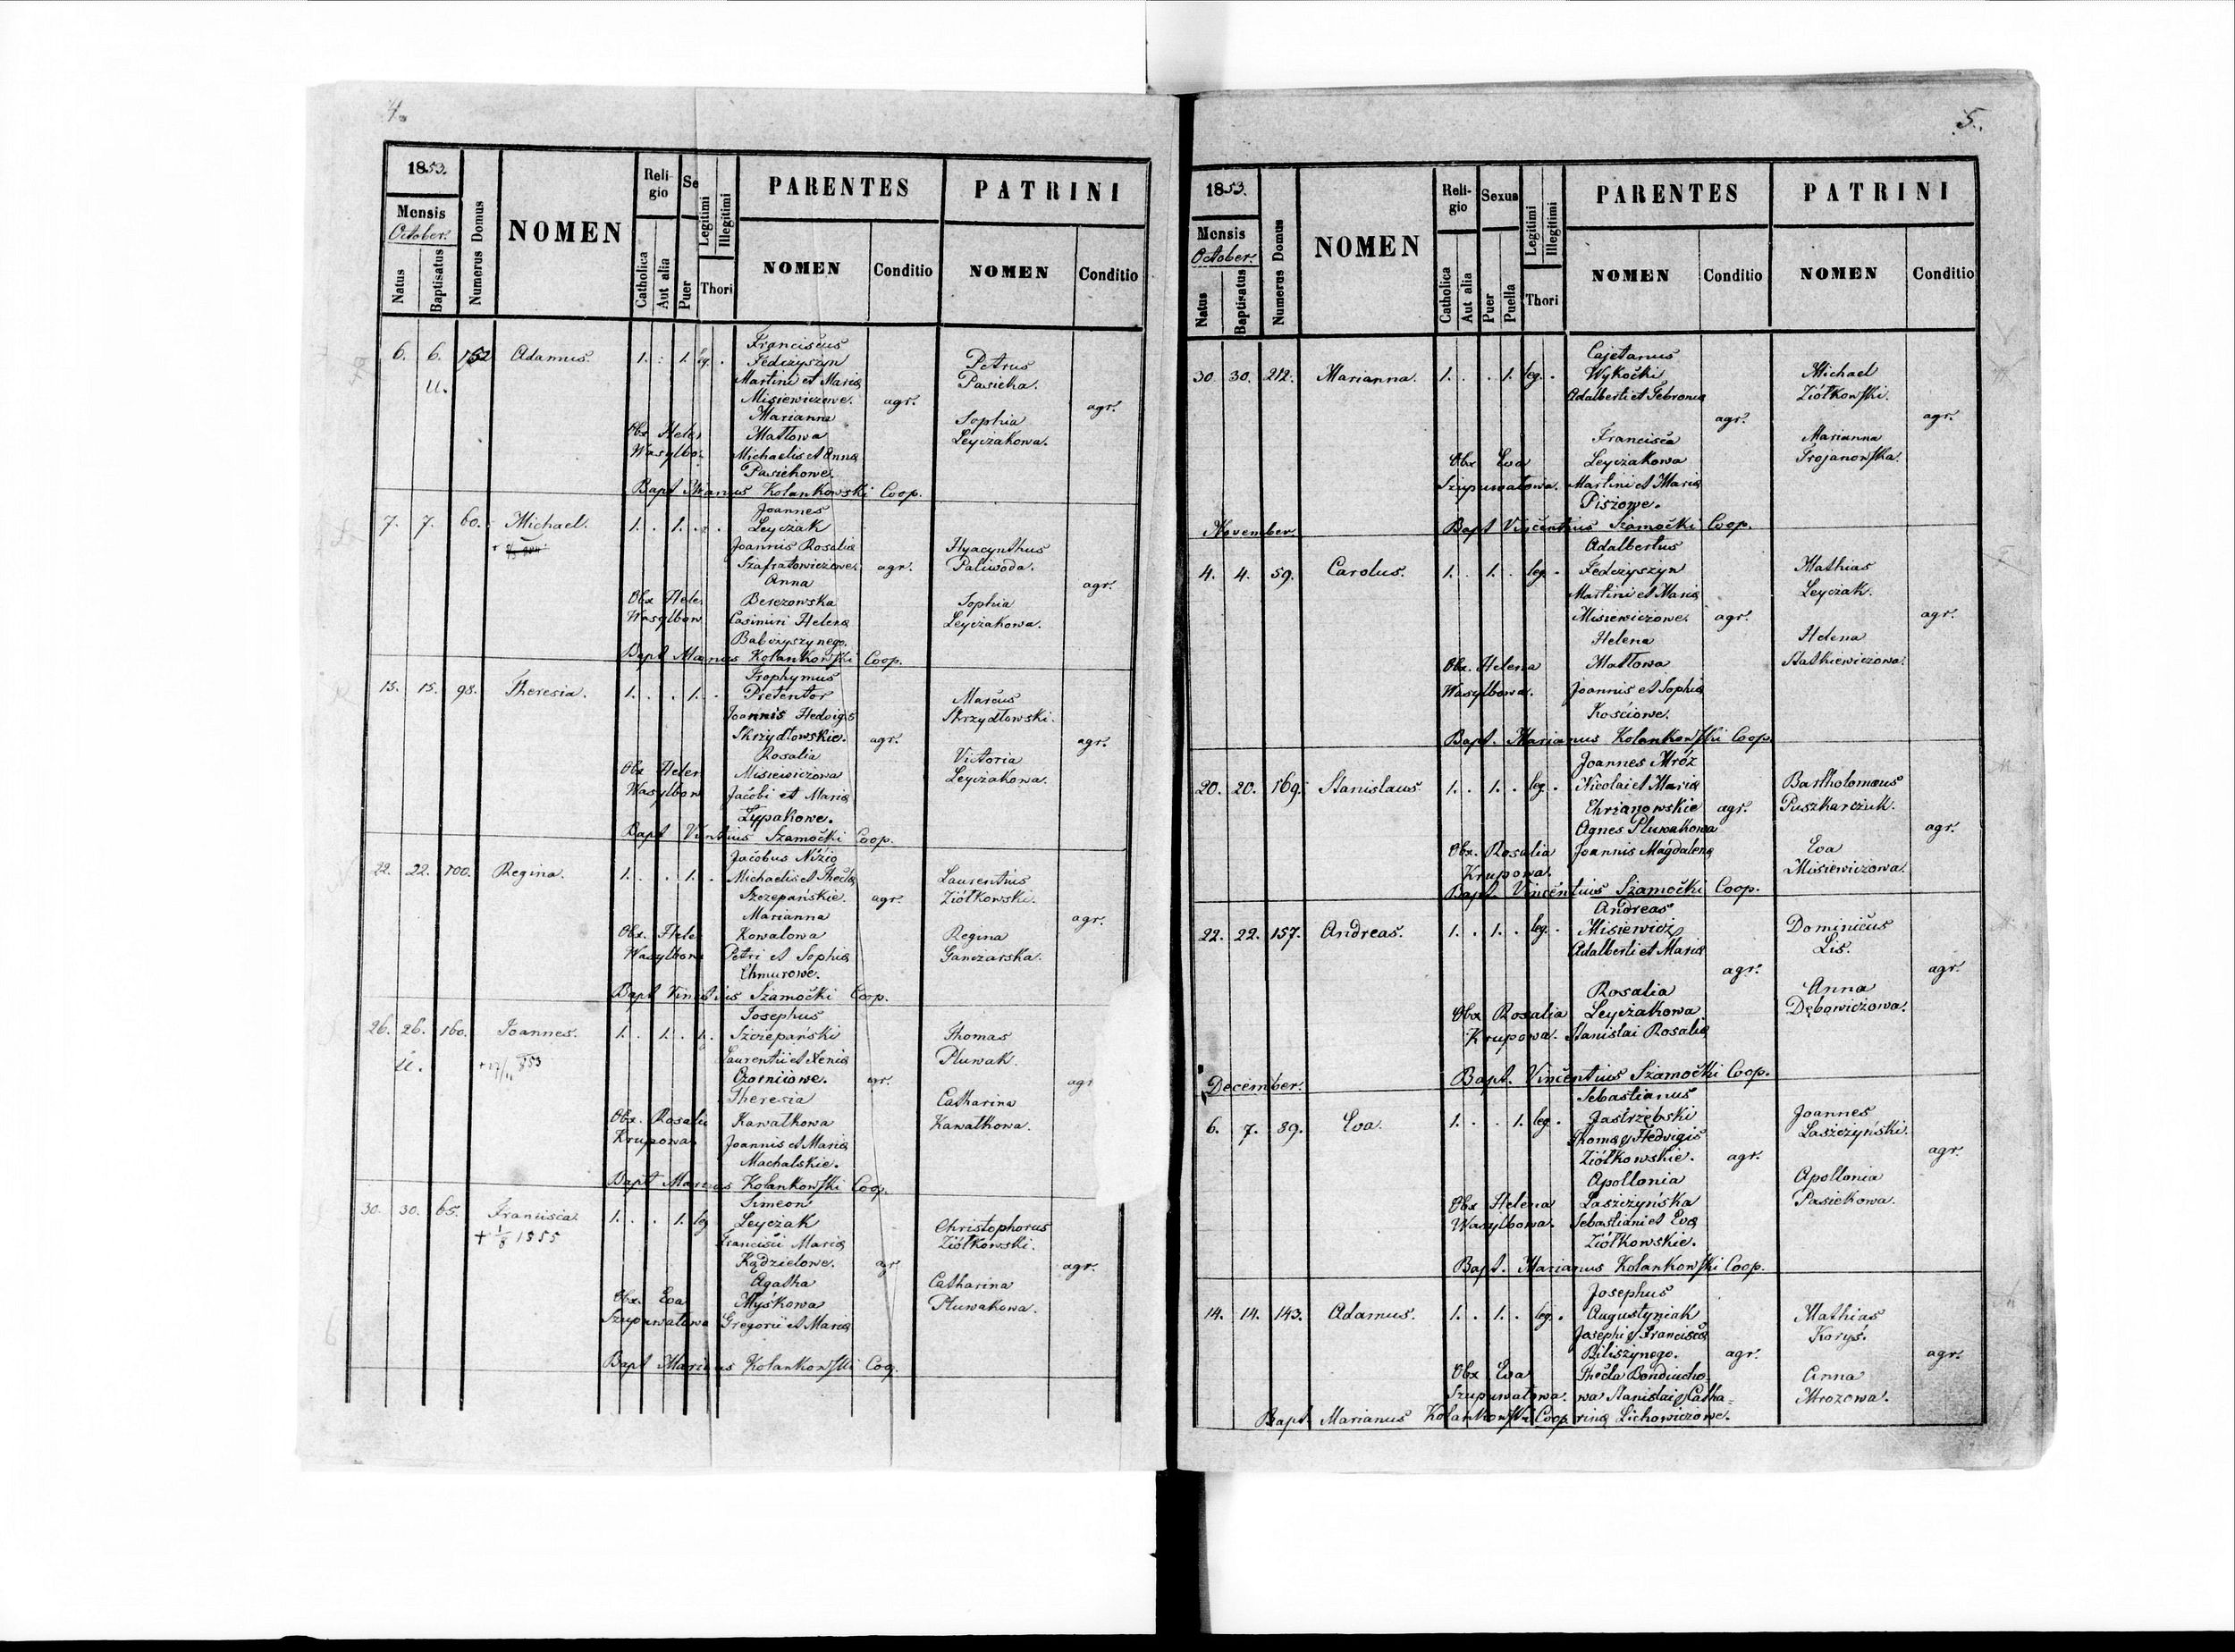 4.
1853.
Mensis
October.
Natus
Baptisatus
Numerus Domus
NOMEN
Religio
Catholica
Aut alia
Se
Puer
Legitimi
Illegitimi
Thori
PARENTES
NOMEN
Conditio
PATRINI
NOMEN
Conditio
6. 6. 152 Adamus. 1. 1. leg.
Franciscus
Fedczyszyn
Martini et Maria
Misiewiczowe.
Marianna
Matłowa
Michaelis et Anna
Pasiekowe.
agr.
Petrus
Pasieka.
Sophia
Leyczakowa.
agr.
Obx Helen
Wasylbow
Bapt Marianus Kolankowski Coop.
7. 7. 60. Michael. 1. 1.
Joannes
Leyczak
Joannis Rosalia
Szafratowiczowe.
Anna
Berezowska
Casimiri Helena
Babczyszynego.
agr.
Hyacynthus
Paliwoda.
Sophia
Leyczakowa.
agr.
Obx Hele
Wasylbow
Bapt Marianus Kolankowski Coop.
15. 15. 98. Theresia. 1. 1.
Trophymus
Pretentor
Joannis Hedvigis
Skrzydłowskie.
Rosalia
Misiewiczowa
Jacobi et Maria
Łypakowe.
agr.
Marcus
Skrzydłowski.
Victoria
Leyczakowa.
agr.
Obx Helen
Wasylbow
Bapt Vintius Szamocki Coop.
22. 22. 100. Regina. 1. 1.
Jacobus Nizio
Michaelis et Thecla
Szczepańskie.
Marianna
Kowalowa
Petri et Sophia
Chmurowe.
agr.
Laurentius
Ziółkowski.
Regina
Ganczarska.
agr.
Obx. Hele
Wasylbow
Bapt Vincentius Szamocki Coop.
26. 26. 160. Joannes. 1. 1. 1.
Josephus
Szczepański
Laurentii et Xenia
Ozorniiowe.
Theresia
Kawałkowa
Joannis et Maria
Machalskie.
agr.
Thomas
Pluwak.
Catharina
Kawałkowa.
agr
Obx. Rosalia
Krupowa
Bapt Marianus Kolankowski Coop.
30. 30. 65. Francisca. 1. 1. leg
+ 1/8 1855
Simeon
Leyczak
Francisci Maria
Kądzielowe.
Agatha
Myśkowa
Gregorii et Maria
agr
Christophorus
Ziółkowski.
Catharina
Pluwakowa.
agr.
Obx. Eva
Szupuwałowa
Bapt Marianus Kolankowski Coop.
5.
1853.
Mensis
October.
Natus
Baptisatus
Numerus Domus
NOMEN
Religio
Catholica
Aut alia
Sexus
Puer
Puella
Legitimi
Illegitimi
Thori
PARENTES
NOMEN
Conditio
PATRINI
NOMEN
Conditio
30. 30. 212. Marianna. 1. 1. leg.
Cajetanus
Wykocki
Adalberti et Febronia
Francisca
Leyczakowa
Martini et Maria
Piszowe.
agr.
Michael
Ziółkowski.
Marianna
Trojanowska.
agr.
Obx Eva
Szupuwałowa.
Bapt Vincentius Szamocki Coop.
November.
4. 4. 59. Carolus. 1. 1. leg.
Adalbertus
Fedczyszyn
Martini et Maria
Misiewiczowe.
Helena
Matłowa
Joannis et Sophia
Kościowe.
agr.
Mathias
Leyczak.
Helena
Statkiewiczowa.
agr.
Obx. Helena
Wasylbowa.
Bapt. Marianus Kolankowski Coop.
20. 20. 169. Stanislaus. 1. 1. leg.
Joannes Mróz
Nicolai et Maria
Chrianowskie
Agnes Pluwakowa
Joannis Magdalena
agr.
Bartholomæus
Puszkarczuk.
Eva
Misiewiczowa.
agr.
Obx. Rosalia
Krupowa.
Bapt. Vincentius Szamocki Coop.
22. 22. 157. Andreas. 1. 1. leg.
Andreas
Misiewicz
Adalberti et Maria
Rosalia
Leyczakowa
Stanislai Rosalia
agr.
Dominicus
Lis.
Anna
Dębowiczowa.
agr.
Obx Rosalia
Krupowa.
Bapt. Vincentius Szamocki Coop.
December.
6. 7. 89. Eva. 1. 1. leg.
Sebastianus
Jastrzębski
Thoma & Hedvigis
Ziółkowskie.
Apollonia
Laszczyńska
Sebastiani et Eva
Ziółkowskie.
agr.
Joannes
Laszczyński.
Apollonia
Pasiekowa.
agr.
Obx Helena
Wasylbowa.
Bapt. Marianus Kolankowski Coop.
14. 14. 143. Adamus. 1. 1. leg.
Josephus
Augustyniak
Josephi & Francisca
Biliszynego.
Thecla Bondiucho
wa Stanislai & Catha=
rina Lichowiczowe.
agr.
Mathias
Koryś.
Anna
Mrozowa.
agr.
Obx Eva
Szupuwałowa.
Bapt. Marianus Kolankowski Coop